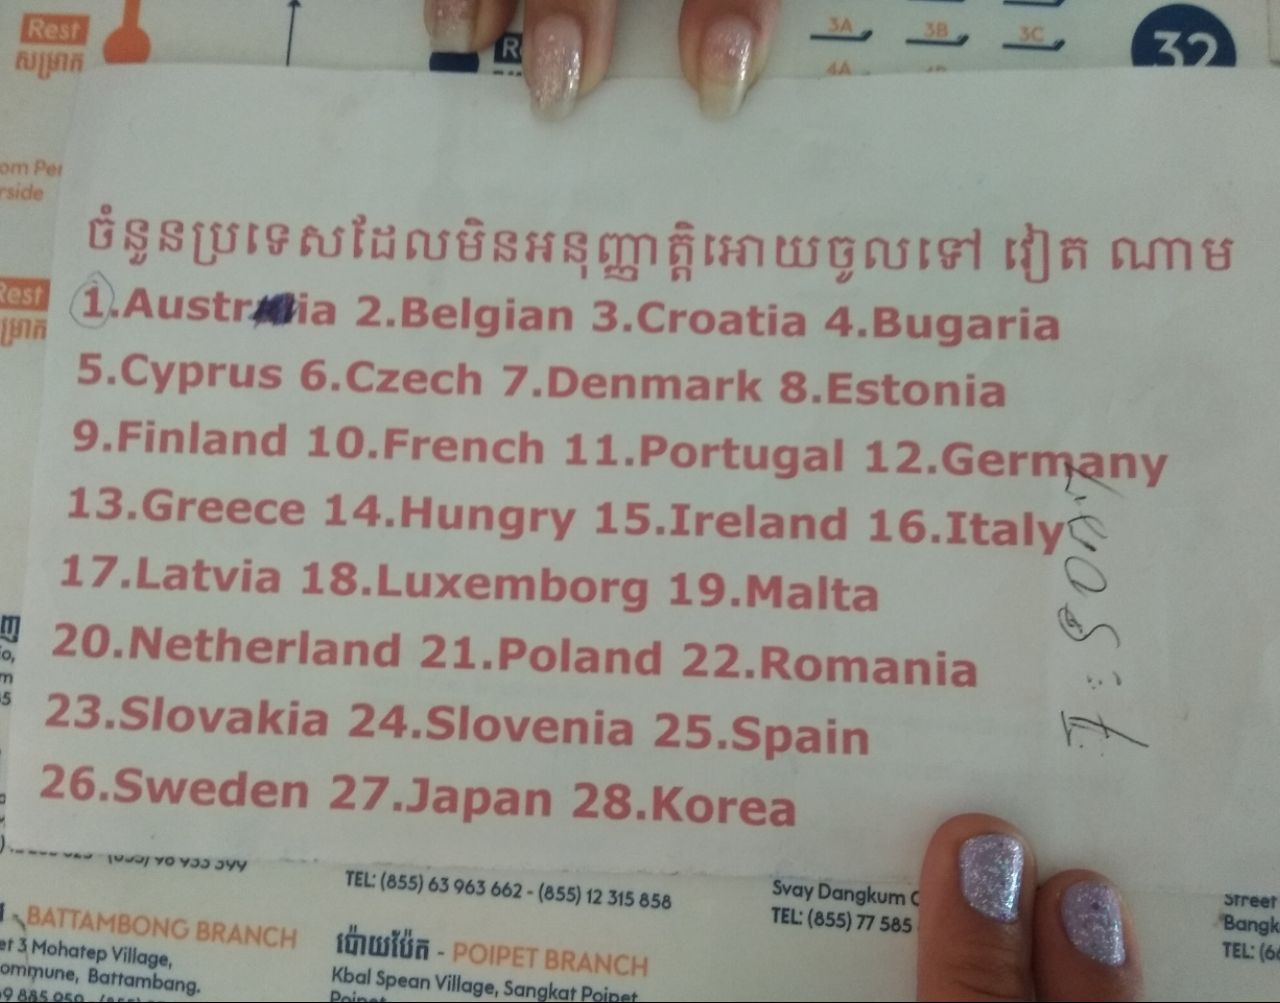 Rest
សម្រាក
3A 3B 3C
4A
32
om Per
rside
Rest
ចំនួនប្រទេសដែលមិនអនុញ្ញាត្តិអោយចូលទៅ វៀត ណាម
1.Austria 2.Belgian 3.Croatia 4.Bugaria
5.Cyprus 6.Czech 7.Denmark 8.Estonia
9.Finland 10.French 11.Portugal 12.Germany
13.Greece 14.Hungry 15.Ireland 16.Italy
17.Latvia 18.Luxemborg 19.Malta
20.Netherland 21.Poland 22.Romania
23.Slovakia 24.Slovenia 25.Spain
26.Sweden 27.Japan 28.Korea
TEL: (855) 63 963 662 - (855) 12 315 858
Svay Dangkum
TEL: (855) 77 585
Street
BATTAMBONG BRANCH
et 3 Mohatep Village,
ommune, Battambang.
ប៉ោយប៉ែត - POIPET BRANCH
Kbal Spean Village, Sangkat Poipet